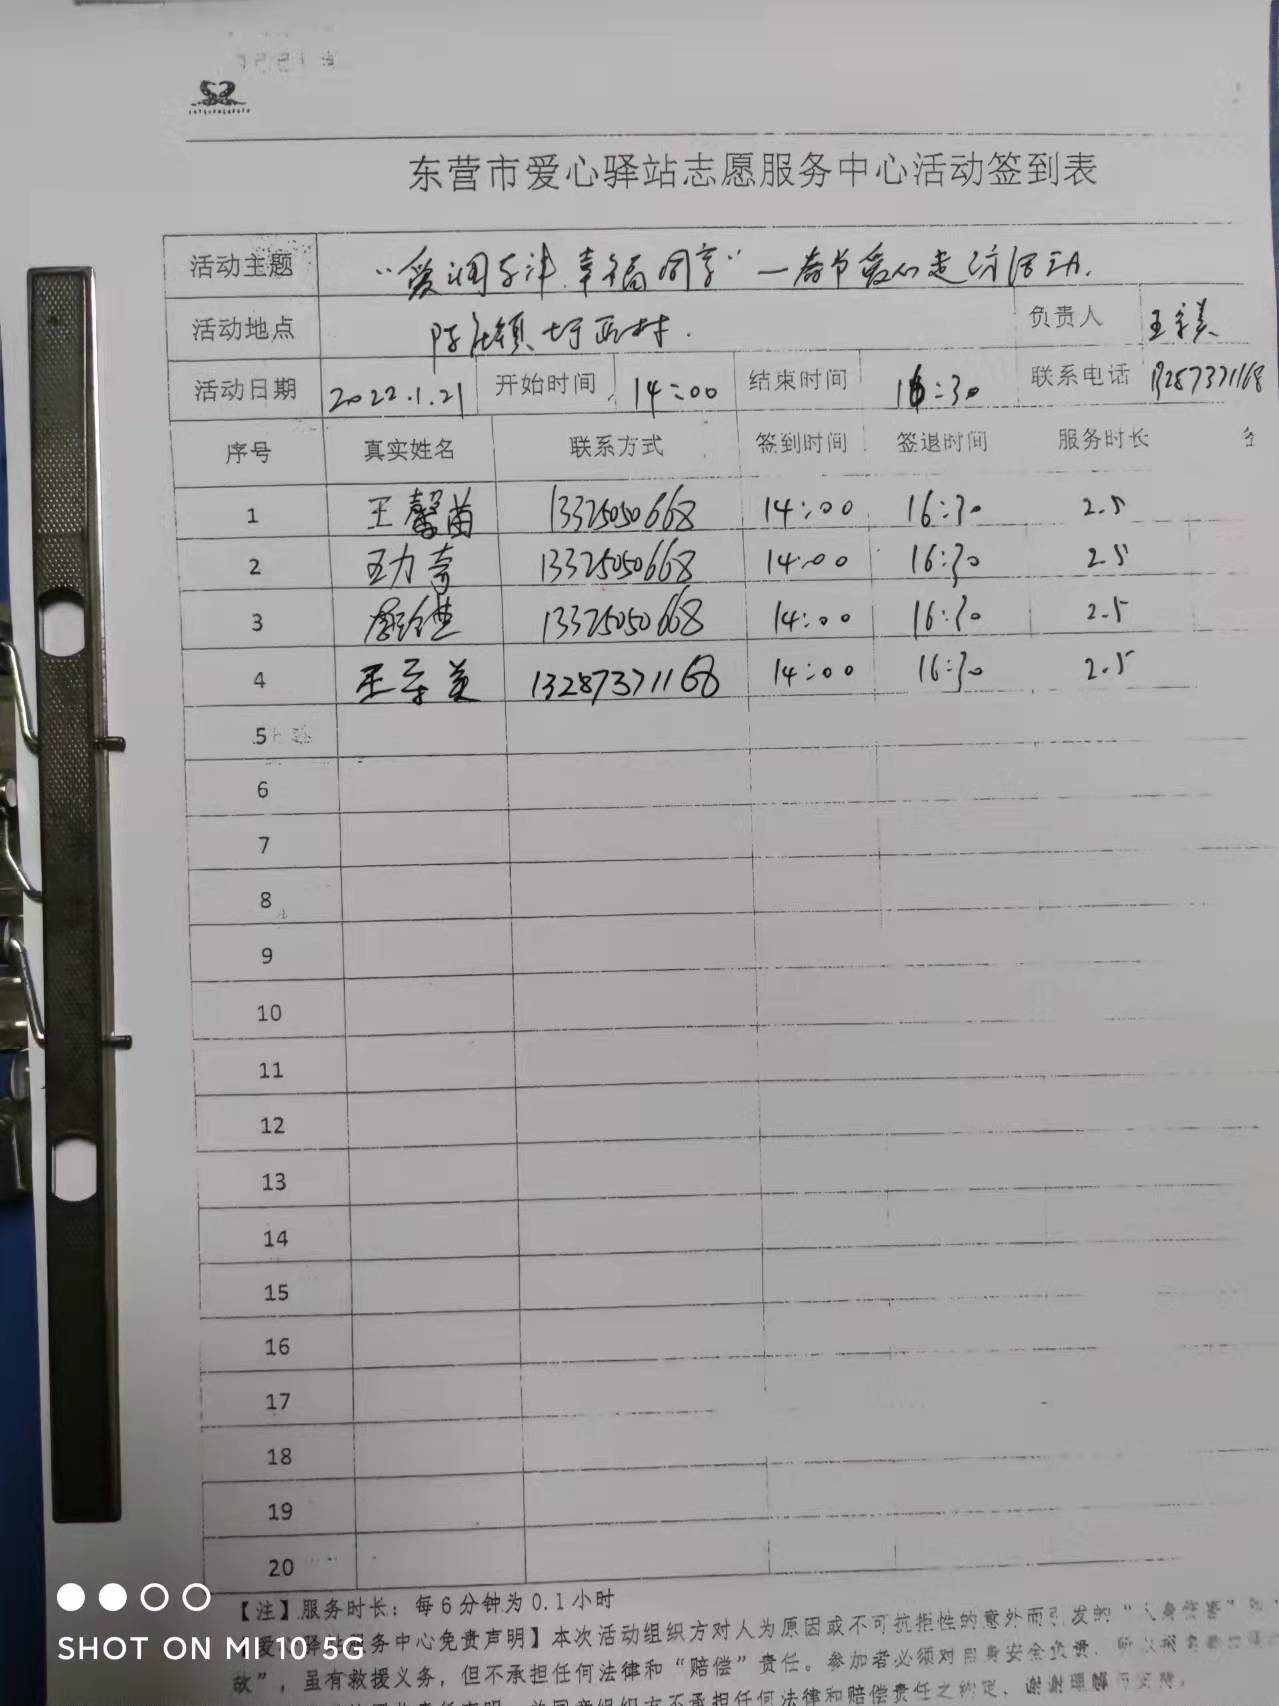 东营市爱心驿站志愿服务中心活动签到表
活动主题 “爱润东津 幸福同享”—春节爱心走访活动.
活动地点 陈庄镇 西村. 负责人 王 美
活动日期 2022.1.21 开始时间 14:00 结束时间 16:30 联系电话 13287371168
序号 真实姓名 联系方式 签到时间 签退时间 服务时长
1 王馨苗 13325050668 14:00 16:30 2.5
2 王力 13325050668 14:00 16:30 2.5
3 13325050668 14:00 16:30 2.5
4 王 美 13287371168 14:00 16:30 2.5
5
6
7
8
9
10
11
12
13
14
15
16
17
18
19
20
【注】服务时长：每6分钟为0.1小时
爱 驿站 服务中心免责声明】本次活动组织方对人为原因或不可抗拒性的意外而引发的“人身伤害”
故”，虽有救援义务，但不承担任何法律和“赔偿”责任。参加者必须对自身安全负责，
责任声明 并同意组织方不承担任何法律和赔偿责任之约定，谢谢理解
SHOT ON MI 10 5G